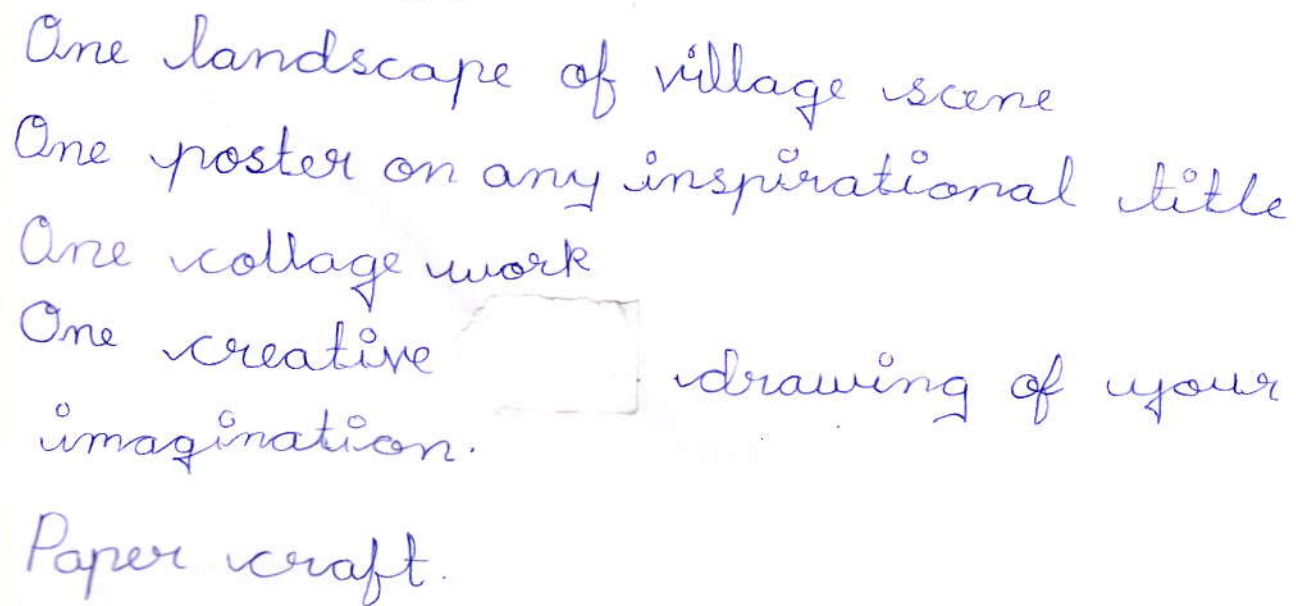 One landscape of village scene
One poster on any inspirational title
One collage work
One creative drawing of your
imagination.
Paper craft.